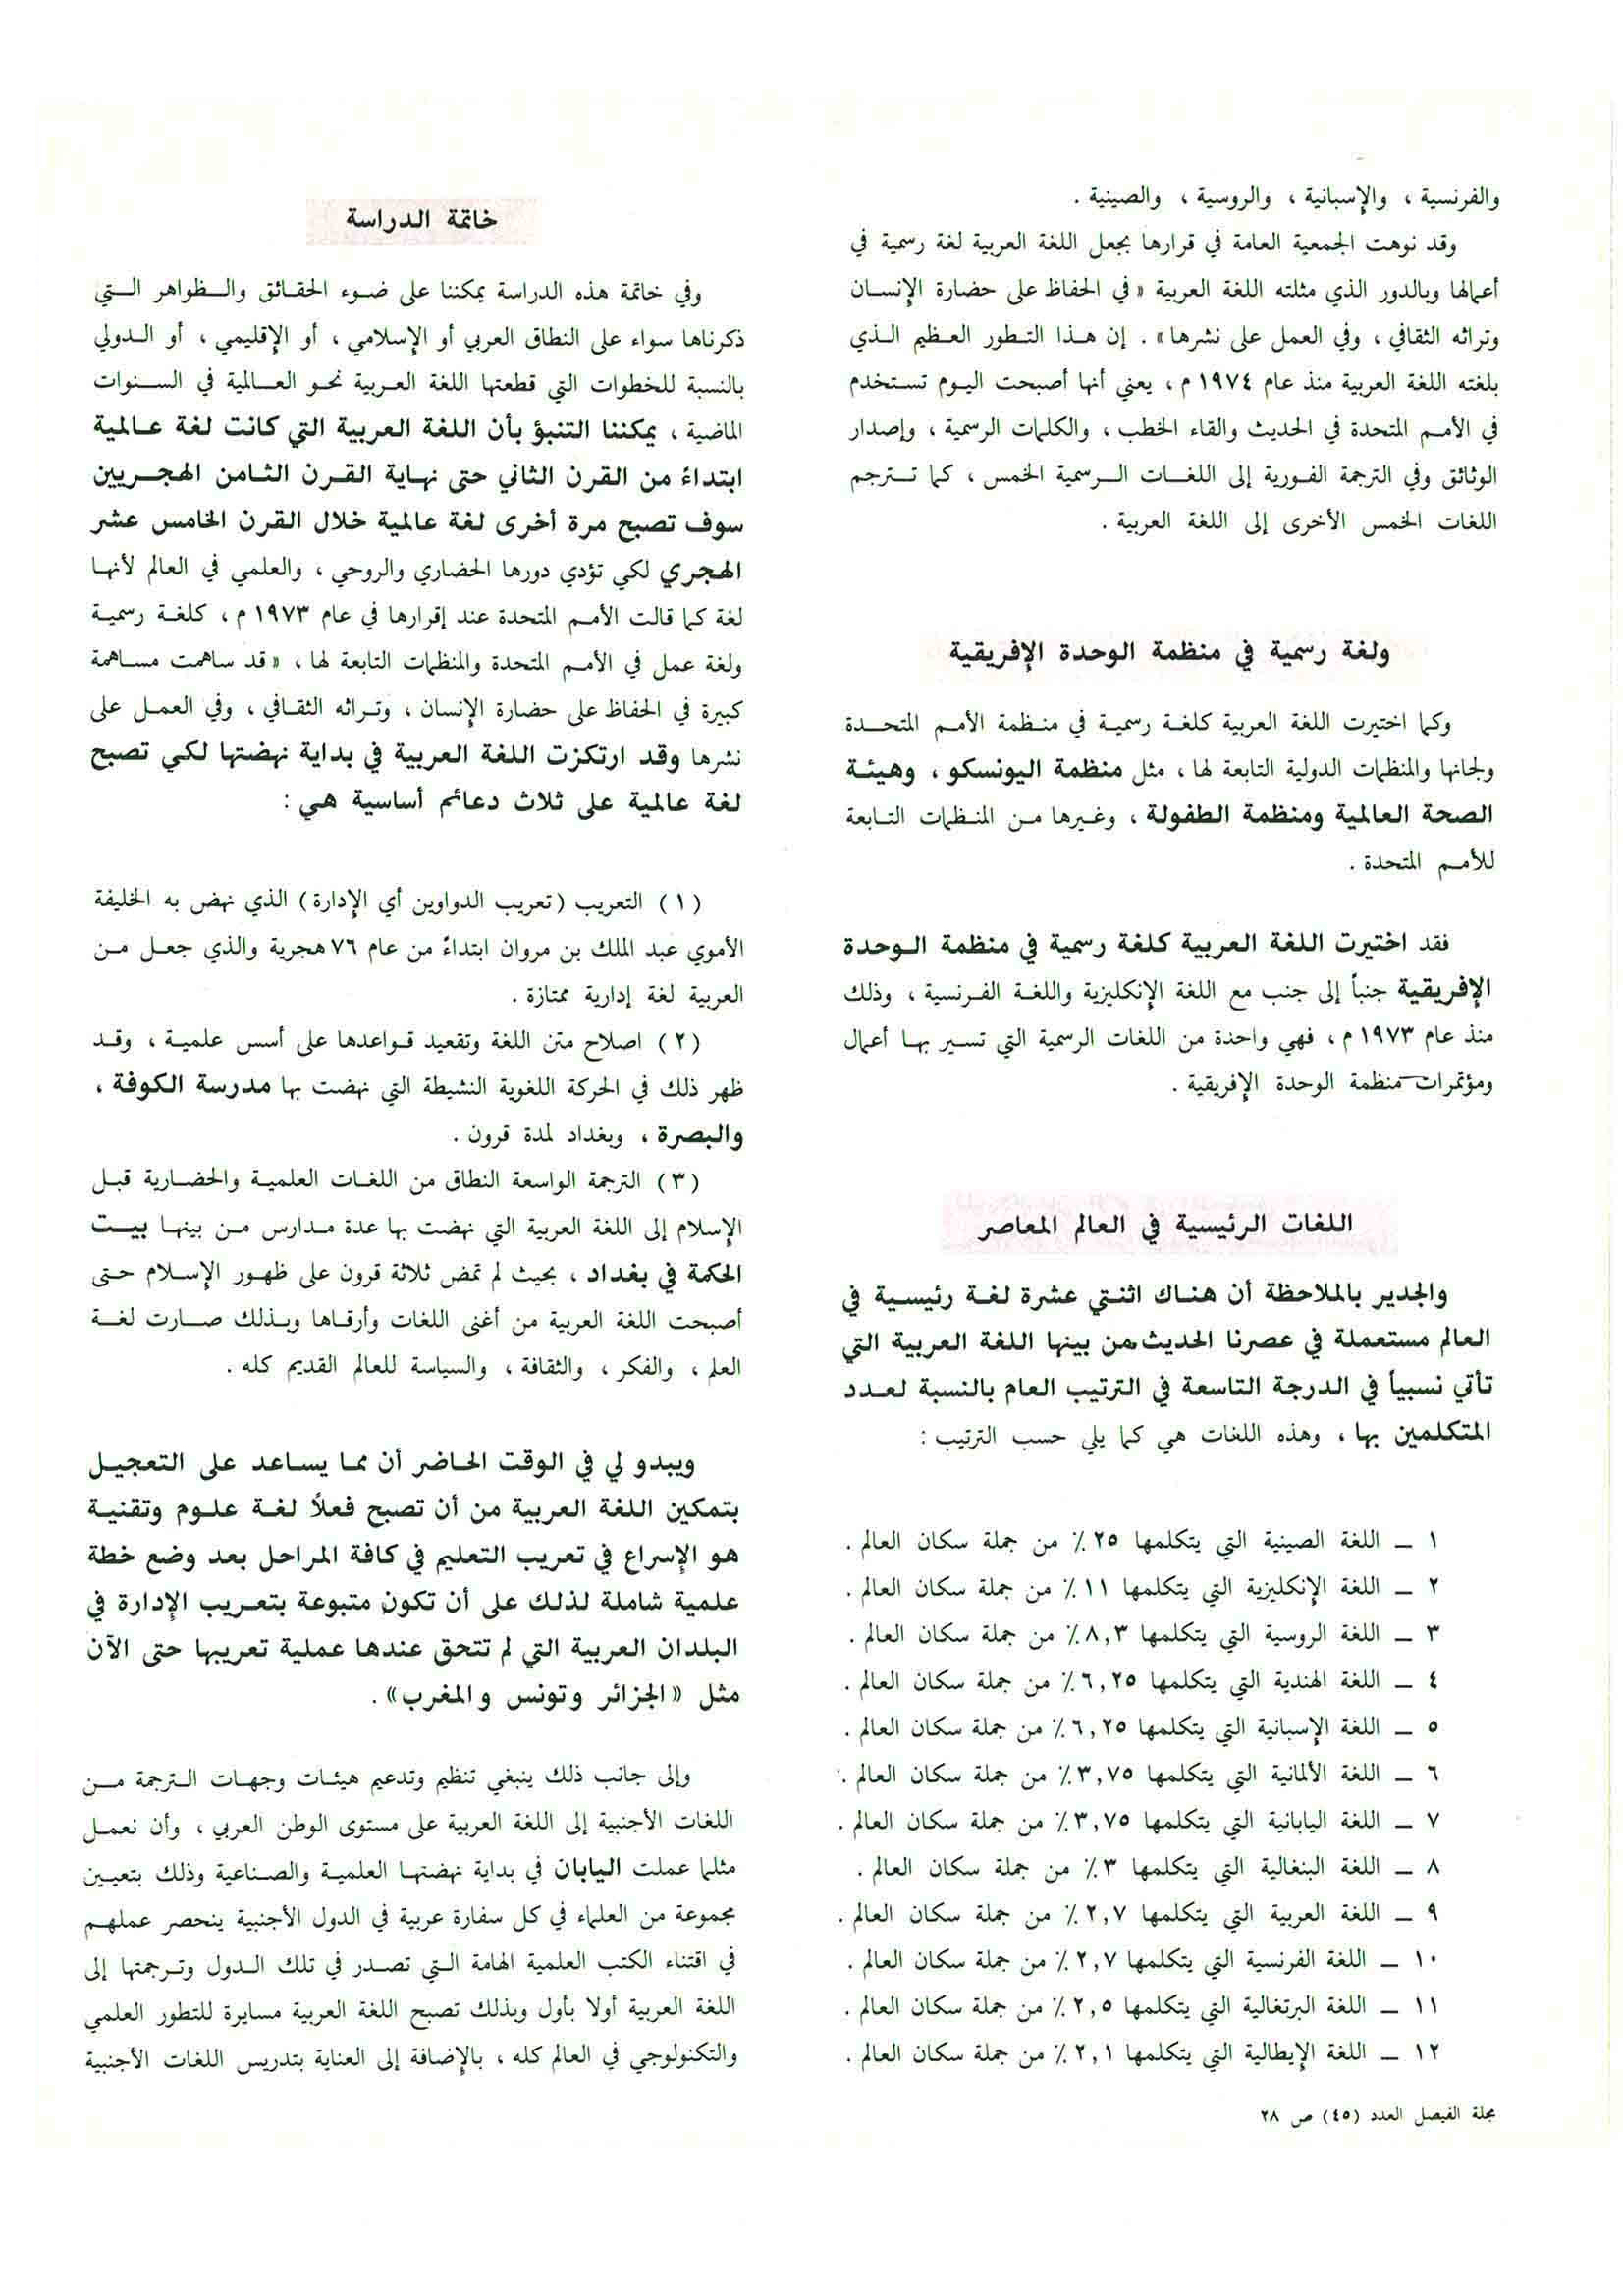 والفرنسية ، والإسبانية ، والروسية ، والصينية .
وقد نوهت الجمعية العامة في قرارها بجعل اللغة العربية لغة رسمية في
أعمالها وبالدور الذي مثلته اللغة العربية « في الحفاظ على حضارة الإنسان
وتراثه الثقافي ، وفي العمل على نشرها » . إن هذا التطور العظيم الذي
بلغته اللغة العربية منذ عام ١٩٧٤ م ، يعني أنها أصبحت اليوم تستخدم
في الأمم المتحدة في الحديث والقاء الخطب ، والكلمات الرسمية ، وإصدار
الوثائق وفي الترجمة الفورية إلى اللغات الرسمية الخمس ، كما تترجم
اللغات الخمس الأخرى إلى اللغة العربية .
ولغة رسمية في منظمة الوحدة الإفريقية
وكما اختيرت اللغة العربية كلغة رسمية في منظمة الأمم المتحدة
ولجانها والمنظمات الدولية التابعة لها ، مثل منظمة اليونسكو ، وهيئة
الصحة العالمية ومنظمة الطفولة ، وغيرها من المنظمات التابعة
للأمم المتحدة .
فقد اختيرت اللغة العربية كلغة رسمية في منظمة الوحدة
الإفريقية جنباً إلى جنب مع اللغة الإنكليزية واللغة الفرنسية ، وذلك
منذ عام ١٩٧٣ م ، فهي واحدة من اللغات الرسمية التي تسير بها أعمال
ومؤتمرات منظمة الوحدة الإفريقية .
اللغات الرئيسية في العالم المعاصر
والجدير بالملاحظة أن هناك اثنتي عشرة لغة رئيسية في
العالم مستعملة في عصرنا الحديث من بينها اللغة العربية التي
تأتي نسبياً في الدرجة التاسعة في الترتيب العام بالنسبة لعدد
المتكلمين بها ، وهذه اللغات هي كما يلي حسب الترتيب :
١ ــ اللغة الصينية التي يتكلمها ٢٥ ٪ من جملة سكان العالم .
٢ ــ اللغة الإنكليزية التي يتكلمها ١١ ٪ من جملة سكان العالم .
٣ ــ اللغة الروسية التي يتكلمها ٨,٣٪ من جملة سكان العالم .
٤ ــ اللغة الهندية التي يتكلمها ٦,٢٥ ٪ من جملة سكان العالم .
٥ ــ اللغة الإسبانية التي يتكلمها ٦,٢٥ ٪ من جملة سكان العالم .
٦ ــ اللغة الألمانية التي يتكلمها ٣,٧٥٪ من جملة سكان العالم .
٧ ــ اللغة اليابانية التي يتكلمها ٣,٧٥٪ من جملة سكان العالم .
٨ ــ اللغة البنغالية التي يتكلمها ٣٪ من جملة سكان العالم .
٩ ــ اللغة العربية التي يتكلمها ٢,٧٪ من جملة سكان العالم .
١٠ ــ اللغة الفرنسية التي يتكلمها ٢,٧ ٪ من جملة سكان العالم .
١١ ــ اللغة البرتغالية التي يتكلمها ٢,٥ ٪ من جملة سكان العالم .
١٢ ــ اللغة الإيطالية التي يتكلمها ٢,١ ٪ من جملة سكان العالم .
مجلة الفيصل العدد (٤٥) ص ٢٨
خاتمة الدراسة
وفي خاتمة هذه الدراسة يمكننا على ضوء الحقائق والظواهر التي
ذكرناها سواء على النطاق العربي أو الإسلامي ، أو الإقليمي ، أو الدولي
بالنسبة للخطوات التي قطعتها اللغة العربية نحو العالمية في السنوات
الماضية ، يمكننا التنبؤ بأن اللغة العربية التي كانت لغة عالمية
ابتداءً من القرن الثاني حتى نهاية القرن الثامن الهجريين
سوف تصبح مرة أخرى لغة عالمية خلال القرن الخامس عشر
الهجري لكي تؤدي دورها الحضاري والروحي ، والعلمي في العالم لأنها
لغة كما قالت الأمم المتحدة عند إقرارها في عام ١٩٧٣ م ، كلغة رسمية
ولغة عمل في الأمم المتحدة والمنظمات التابعة لها ، « قد ساهمت مساهمة
كبيرة في الحفاظ على حضارة الإنسان ، وتراثه الثقافي ، وفي العمل على
نشرها وقد ارتكزت اللغة العربية في بداية نهضتها لكي تصبح
لغة عالمية على ثلاث دعائم أساسية هي :
(١) التعريب (تعريب الدواوين أي الإدارة) الذي نهض به الخليفة
الأموي عبد الملك بن مروان ابتداءً من عام ٧٦ هجرية والذي جعل من
العربية لغة إدارية ممتازة .
(٢) اصلاح متن اللغة وتقعيد قواعدها على أسس علمية ، وقد
ظهر ذلك في الحركة اللغوية النشيطة التي نهضت بها مدرسة الكوفة ،
والبصرة ، وبغداد لمدة قرون .
(٣) الترجمة الواسعة النطاق من اللغات العلمية والحضارية قبل
الإسلام إلى اللغة العربية التي نهضت بها عدة مدارس من بينها بيت
الحكمة في بغداد ، بحيث لم تمض ثلاثة قرون على ظهور الإسلام حتى
أصبحت اللغة العربية من أغنى اللغات وأرقاها وبذلك صارت لغة
العلم ، والفكر ، والثقافة ، والسياسة للعالم القديم كله .
ويبدو لي في الوقت الحاضر أن مما يساعد على التعجيل
بتمكين اللغة العربية من أن تصبح فعلاً لغة علوم وتقنية
هو الإسراع في تعريب التعليم في كافة المراحل بعد وضع خطة
علمية شاملة لذلك على أن تكون متبوعة بتعريب الإدارة في
البلدان العربية التي لم تتحق عندها عملية تعريبها حتى الآن
مثل « الجزائر وتونس والمغرب » .
وإلى جانب ذلك ينبغي تنظيم وتدعيم هيئات وجهات الترجمة من
اللغات الأجنبية إلى اللغة العربية على مستوى الوطن العربي ، وأن نعمل
مثلما عملت اليابان في بداية نهضتها العلمية والصناعية وذلك بتعيين
مجموعة من العلماء في كل سفارة عربية في الدول الأجنبية ينحصر عملهم
في اقتناء الكتب العلمية الهامة التي تصدر في تلك الدول وترجمتها إلى
اللغة العربية أولا بأول وبذلك تصبح اللغة العربية مسايرة للتطور العلمي
والتكنولوجي في العالم كله ، بالإضافة إلى العناية بتدريس اللغات الأجنبية